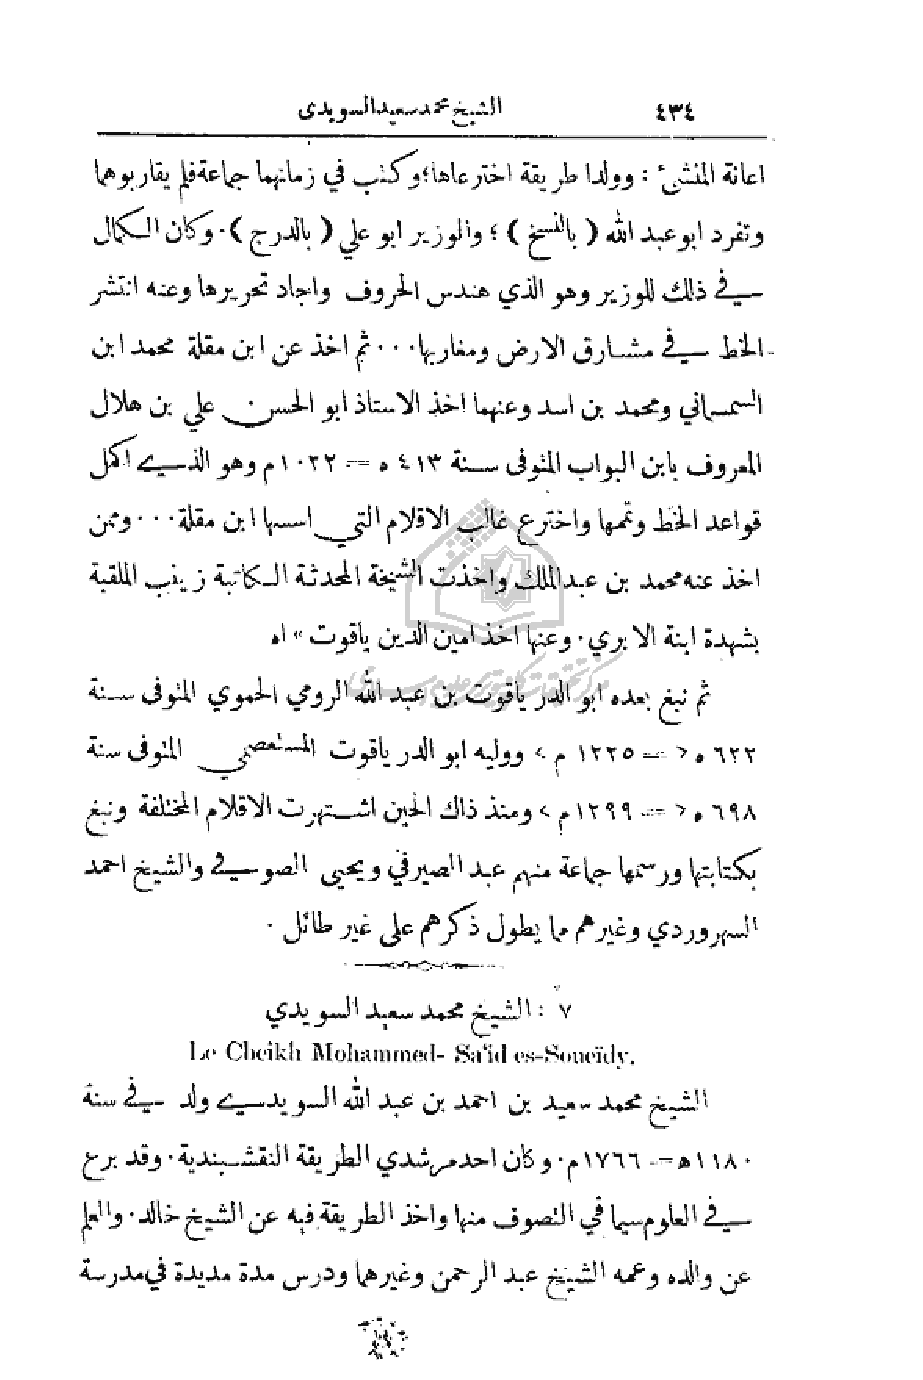 ٤٣٤ الشيخ محمد سعيد السويدي
اعانة المنشئ : وولدا طريقة اخترعاها؛ وكتب في زمانهما جماعة فلم يقاربوهما
وتفرد ابو عبد الله ( بالنسخ ) ؛ والوزير ابو علي ( بالدرج ) ٠ وكان الكمال
في ذلك للوزير وهو الذي هندس الحروف واجاد تحريرها وعنه انتشر
الخط في مشارق الارض ومغاربها ٠٠٠ ثم اخذ عن ابن مقلة محمد ابن
السمساني ومحمد بن اسد وعنهما اخذ الاستاذ ابو الحسن علي بن هلال
المعروف بابن البواب المتوفى سنة ٤١٣ ه = ١٠٢٢ م وهو الذي اكمل
قواعد الخط وتممها واخترع غالب الاقلام التي اسسها ابن مقلة ٠٠٠ وممن
اخذ عنه محمد بن عبد الملك واخذت الشيخة المحدثة الكاتبة زينب الملقبة
بشهدة ابنة الابري ٠ وعنها اخذ امين الدين ياقوت » اه
ثم نبغ بعده ابو الدر ياقوت بن عبد الله الرومي الحموي المتوفى سنة
٦٢٢ ه < = ١٢٢٥ م > ووليه ابو الدر ياقوت المستعصمي المتوفى سنة
٦٩٨ ه < = ١٢٩٩ م > ومنذ ذاك الحين اشتهرت الاقلام المختلفة ونبغ
بكتابتها ورسمها جماعة منهم عبد الصيرفي ويحيى الصوفي والشيخ احمد
السهروردي وغيرهم مما يطول ذكرهم على غير طائل ٠
٧ : الشيخ محمد سعيد السويدي
Le Cheikh Mohammed- Sa'id es-Soueïdy.
الشيخ محمد سعيد بن احمد بن عبد الله السويدي ولد في سنة
١١٨٠ ه = ١٧٦٦ م ٠ وكان احد مرشدي الطريقة النقشبندية ٠ وقد برع
في العلوم سيما في التصوف منها واخذ الطريقة فيه عن الشيخ خالد ٠ والعلم
عن والده وعمه الشيخ عبد الرحمن وغيرهما ودرس مدة مديدة في مدرسة